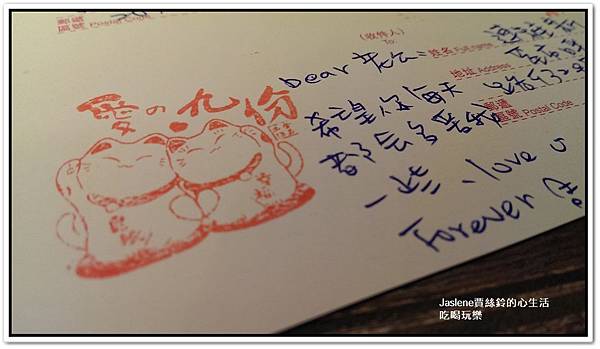 郵遞
區號 Postal Code
(收件人)
To:
姓名 Full name
地址 Address
郵遞
區號 Postal Code
愛の九份
Dear 老公:
希望你每天
都會多愛我
一些、love u
Forever
Jaslene賈絲鈴的心生活
吃喝玩樂